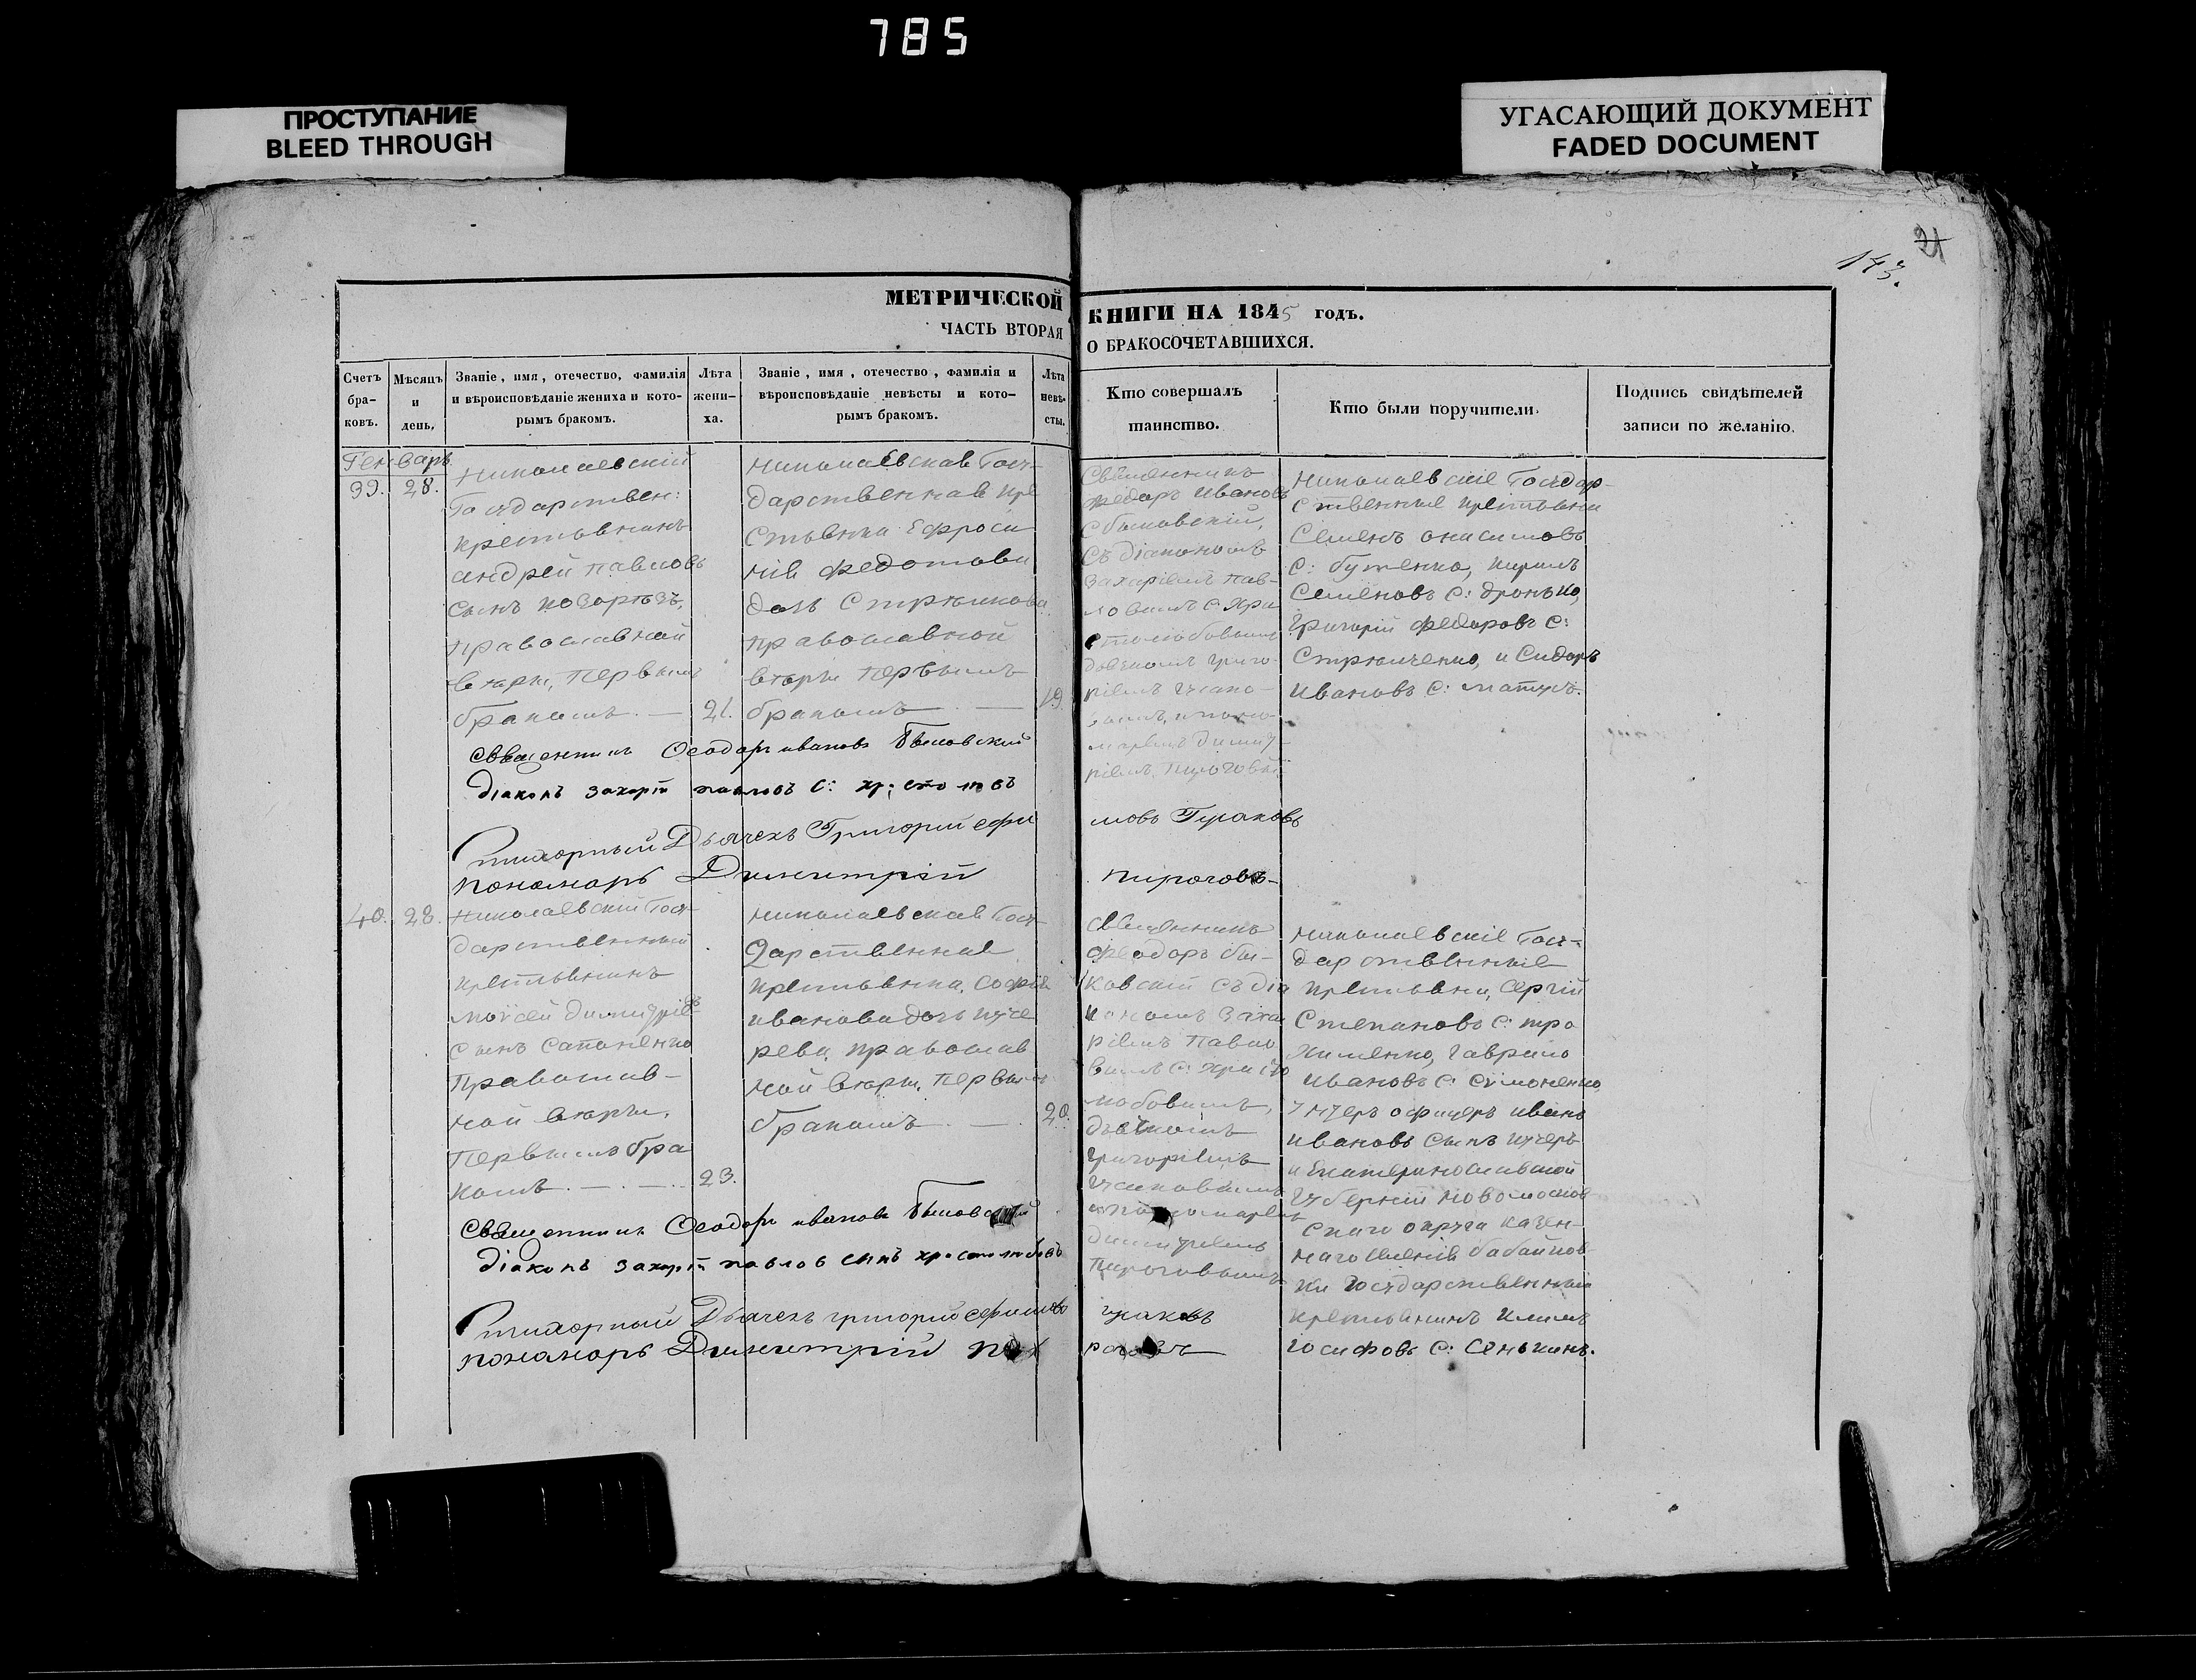 785
ПРОСТУПАНИЕ
BLEED THROUGH
УГАСАЮЩИЙ ДОКУМЕНТ
FADED DOCUMENT
21
143.
МЕТРИЧЕСКОЙ
КНИГИ НА 1845 годъ.
ЧАСТЬ ВТОРАЯ
О БРАКОСОЧЕТАВШИХСЯ.
Счетъ
бра-
ковъ.
Мѣсяцъ
и
день,
Званіе, имя, отечество, фамилія
и вѣроисповѣданіе жениха и кото-
рымъ бракомъ.
Лѣта
жени-
ха.
Званіе, имя, отечество, фамилія и
вѣроисповѣданіе невѣсты и кото-
рымъ бракомъ.
Лѣта
невѣ-
сты.
Кто совершалъ
таинство.
Кто были поручители.
Подпись свидѣтелей
записи по желанію.
Генварь
39. 28.
Николаевскій
Государствен:
крестьянинъ
андрей павловъ
сынъ козорѣзъ,
православной
вѣры, первымъ
бракомъ. — 21.
Николаевская Госу-
дарственная кре
стьянка Ефроси
нія федотова
дочь Стрѣлкова
православной
вѣры первымъ
бракомъ — 19.
Священникъ
федоръ Ивановъ
с быковскій,
съ діакономъ
захаріемъ пав-
ловымъ с. хри
столюбовымъ
дьячкомъ григо-
ріемъ гусако-
вымъ, и поно-
маремъ димит-
ріемъ Пироговым
Николаевскіе Государ-
ственные крестьяни
Семенъ онисимовъ
с: бутенко, кирилъ
Семеновъ с: дронько,
Григорій федоровъ с:
Стрюченко, и Сидоръ
Ивановъ с: матусъ.
священникъ Ѳеодоръ иванов Быковский
діаконъ захарій павловъ с: христолювъ
Дьячекъ Григорий ефи
мовъ Гусаковъ
пономарь Димитрій
пироговъ
40. 28.
Николаевскій Госу-
дарственный
крестьянинъ
Мойсей димитріевъ
сынъ Сапоненко
Православ-
ной вѣры,
Первымъ бра
комъ. — . — . 23.
Николаевская Госу-
дарственная
крестьянка, софія
иванова дочь куче
рева, православ
ной вѣры, первымъ
бракомъ — . 20.
священникъ
феодоръ бы-
ковскій съ діа
кономъ Заха
ріемъ Павло
вымъ с: христо
любовымъ,
дьячкомъ
григоріемъ
Гусаковымъ
и пономаремъ
димитріемъ
Пироговымъ
Николаевскіе Госу-
дарственные
крестьяни, сергій
Степановъ с: тро
хименко, гаврило
ивановъ с: симоненко
унтеръ офицеръ иванъ
ивановъ сынъ кучеръ
и Екатеринославской
Губерніи новомосков
скаго округа казен-
наго селенія бабайков
ки Государственный
крестьянинъ климъ
Іосифовъ с: сенькинъ.
Священникъ Ѳеодоръ иванов Быковский
діаконъ захарій павлов сынъ христолюбовъ
Дьячекъ григорий ефимов
гусаковъ
пономарь Димитрій